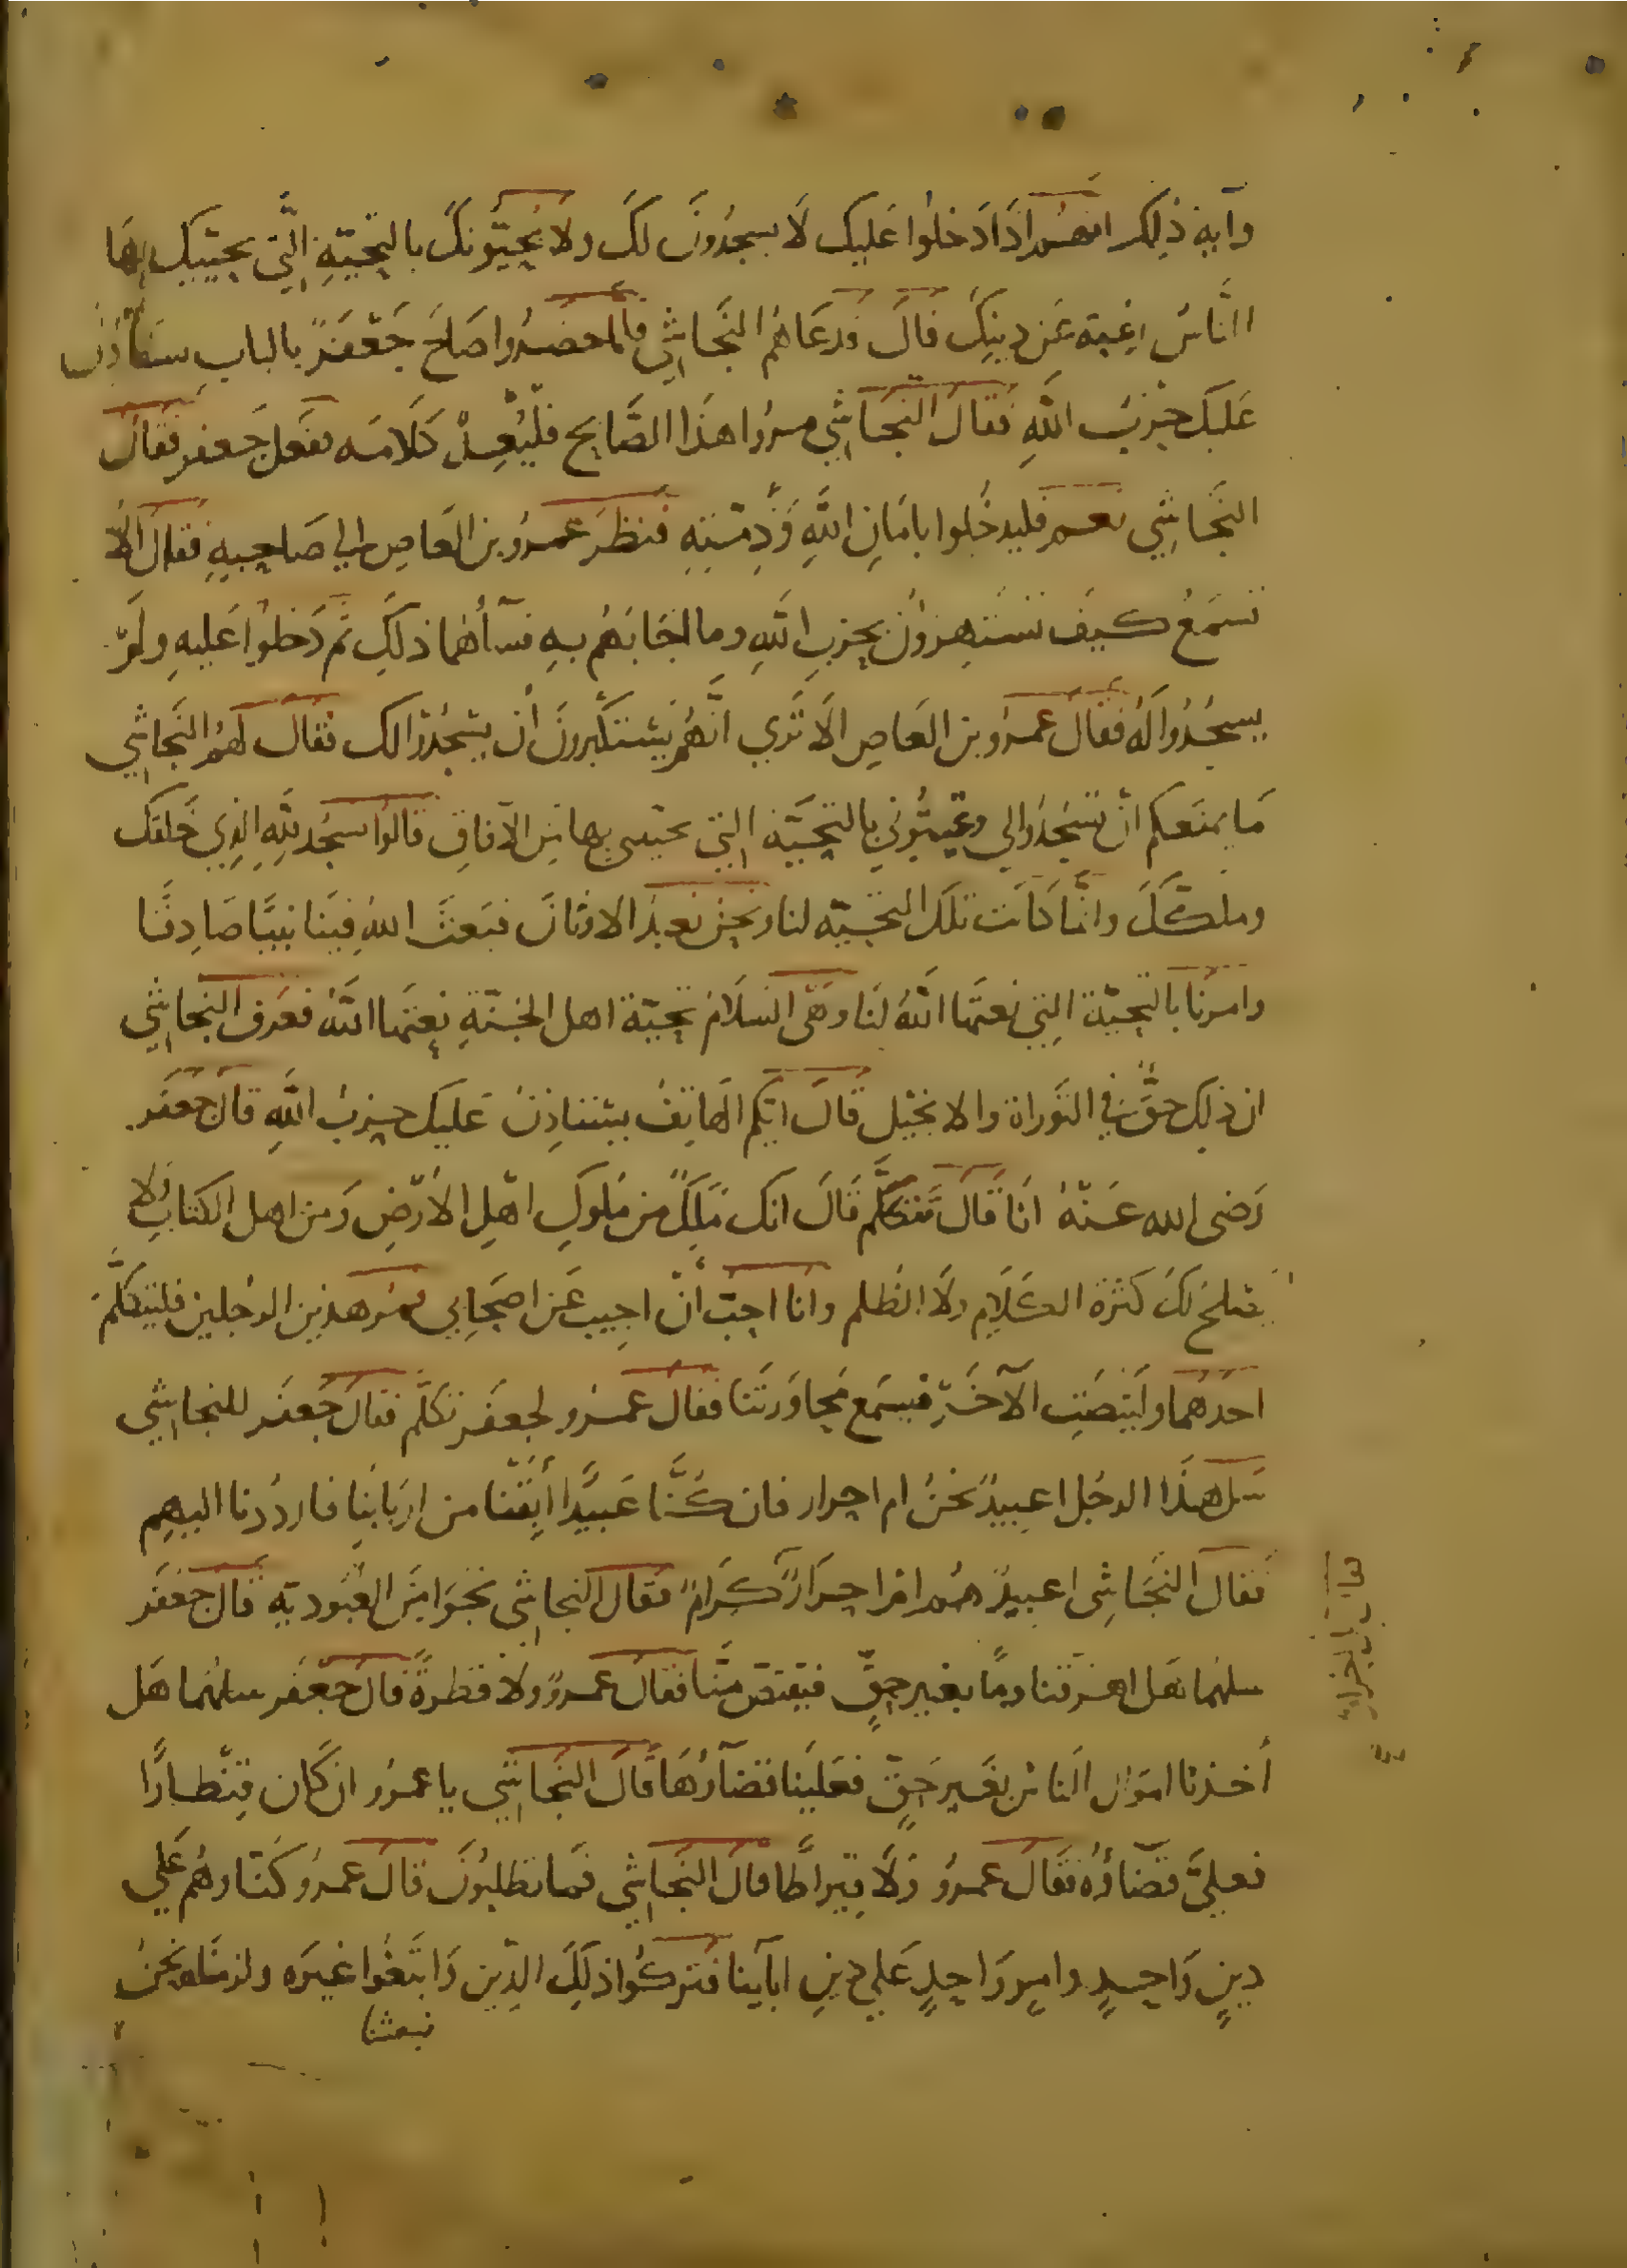 وآيه ذلك انهم اذا دخلوا عليك لا يسجدون لك ولا يحيّونك بالتحيّة التي يحيّيك بها
الناس رغبة عن دينك قال فدعاهم النجاشي فلما حضروا صاح جعفر بالباب يستاذن
عليك حزب الله فقال النجاشي مروا هذا الصايح فليعد كلامه ففعل جعفر فقال
النجاشي نعم فليدخلوا بامان الله وذمّته فنظر عمرو بن العاص الي صاحبه فقال الا
تسمع كيف يستهزون بحزب الله وما اجابهم به فسآءهما ذلك ثم دخلوا عليه ولم
يسجدوا له فقال عمرو بن العاص الا تري انهم يستكبرون أن يسجدوا لك فقال لهم النجاشي
ما يمنعكم ان تسجدوا لي وتحيّوني بالتحيّة التي يحييى بها من الآفاق قالوا نسجد لله الذي خلقك
وملكك وانما كانت تلك التحيّه لنا ونحن نعبد الاوثان فبعث الله فينا نبيّا صادقًا
وامرنا بالتحيّة التي نعتها الله لنا وهى السلام تحيّة اهل الجنّة نعتها الله فعرف النجاشي
ان ذلك حقّ في التوراة والانجيل قال ايكم الهاتف يستاذن عليك حزب الله قال جعفر
رضى الله عنه انا قال فتكلّم قال انك ملك من ملوك اهل الارض ومن اهل الكتاب ولا
يصلح لك كثرة الكلام ولا الظلم وانا احب أن اجيب عن اصحابي فمر هذين الرجلين فليتكلّم
احدهما ولينصت الآخر فيسمع محاورتنا فقال عمرو لجعفر تكلّم فقال جعفر للنجاشي
سل هذا الرجل اعبيد نحن ام احرار فان كنّا عبيدًا أبقنا من اربابنا فارددنا اليهم
فقال النجاشى اعبيد هم ام احرار كرام فقال النجاشي نجوا من العبودية قال جعفر
سلهما هل اهرقنا دمًا بغير حقّ فيقتص منّا فقال عمرو ولا قطرة قال جعفر سلهما هل
أخذنا اموال الناس بغير حقّ فعلينا قضآؤها قال النجاشي يا عمرو ان كان قنطارًا
فعليّ قضآؤه فقال عمرو ولا قيراطًا قال النجاشي فما تطلبون قال عمرو كنّا وهم علي
دين واحد وامر واحد علي دين ابآينا فتركوا ذلك الدين وابتغوا غيره ولزمناه نحن
فبعثنا